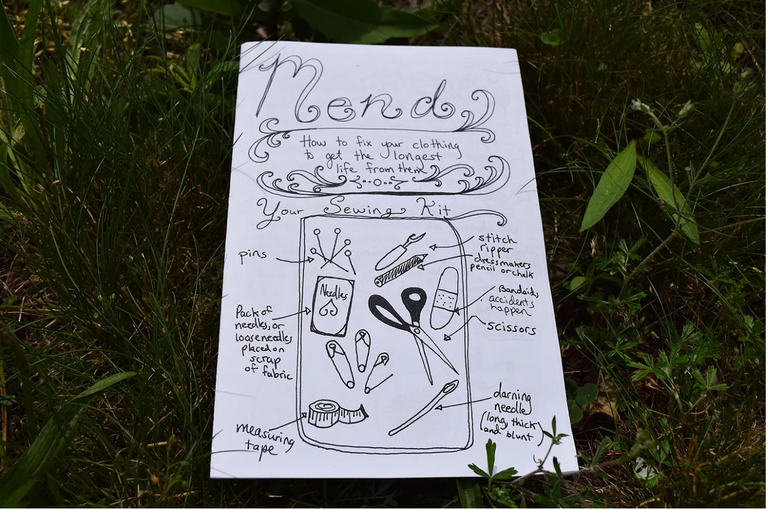 Mend
How to fix your clothing
to get the longest
life from them
Your Sewing Kit
pins
stitch
ripper
dressmakers
pencil or chalk
Needles
Bandaids,
accidents
happen
Pack of
needles, or
loose needles
placed on
scrap
of fabric
scissors
measuring
tape
darning
needle
(long, thick
and blunt)